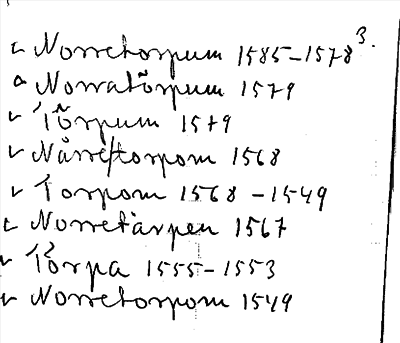 3.
Norretorpum 1585–1578
Norratõrpum 1579
Tõrpum 1579
Nårre/torpom 1568
Torpom 1568 – 1549
Norretarpen 1567
Torpa 1555–1553
Norretorpom 1549